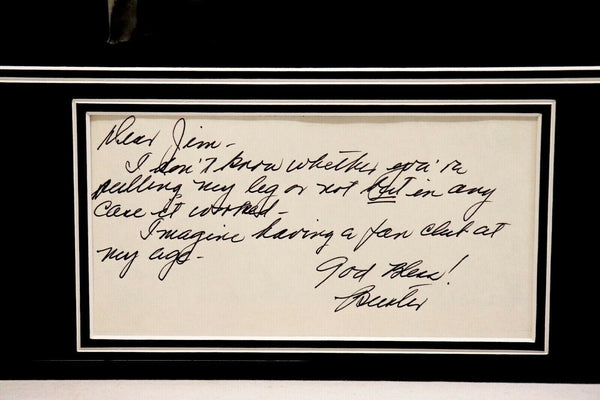 Dear Jim -
I don't know whether you're
pulling my leg or not but in any
case it worked -
Imagine having a fan club at
my age -
God Bless!
Buster